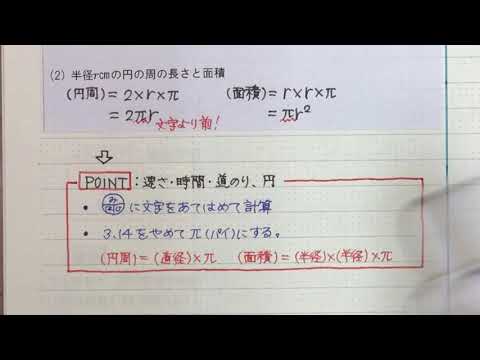 (2) 半径rcmの円の周の長さと面積
(円周) = 2×r×π (面積) = r×r×π
= 2πr 文字より前! = πr²
POINT:速さ・時間・道のり、円
・ み は じ に文字をあてはめて計算
・ 3.14をやめてπ(パイ)にする。
(円周)=(直径)×π (面積)=(半径)×(半径)×π